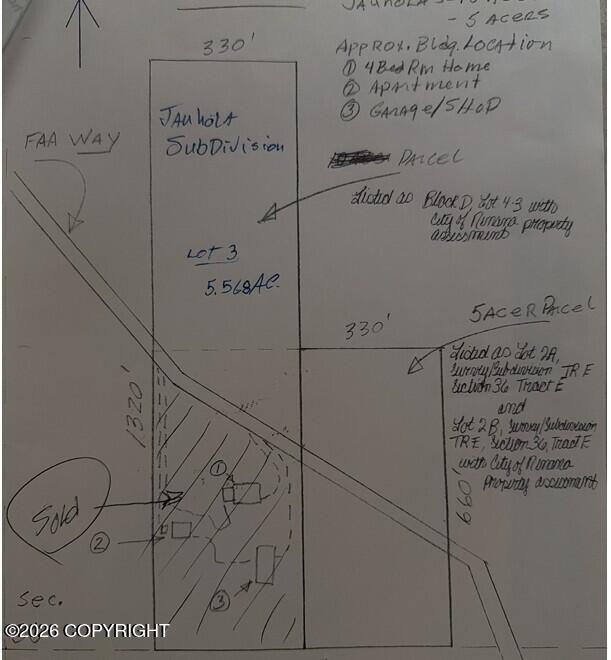 - 5 ACERS
330'
Approx. Bldg. Location
① 4 Bed Rm Home
② Apartment
③ Garage/SHOP
Jauhola
SubDivision
FAA WAY
Parcel
Listed as Block D, Lot 4-3 with
City of Nenana property
assessment
Lot 3
5.568 AC.
5 Acer Parcel
330'
Listed as Lot 2A,
Survey/Subdivision TR E
Section 36 Tract E
and
Lot 2B, Survey/Subdivision
TR E, Section 36, Tract E
with City of Nenana
Property assessment
1320'
660
①
Sold
②
③
sec.
©2026 COPYRIGHT